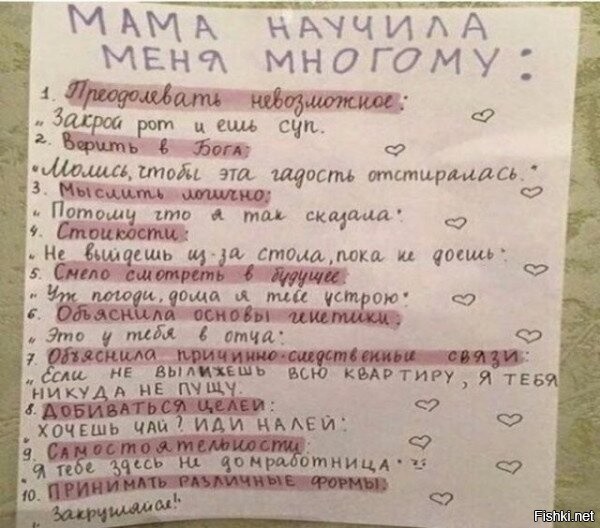 МАМА НАУЧИЛА
МЕНЯ МНОГОМУ:
1. Преодолевать невозможное:
„Закрой рот и ешь суп.
2. Верить в Бога:
„Молись, чтобы эта гадость отстиралась."
3. Мыслить логично:
„Потому что я так сказала"
4. Стойкости:
„Не выйдешь из-за стола, пока не доешь"
5. Смело смотреть в будущее:
„Уж погоди, дома я тебе устрою"
6. Объяснила основы генетики:
„Это у тебя в отца"
7. Объяснила причинно-следственные связи:
„Если не вылижешь всю квартиру, я тебя
никуда не пущу.
8. ДОБИВАТЬСЯ ЦЕЛЕЙ:
„ХОЧЕШЬ ЧАЙ? ИДИ НАЛЕЙ"
9. Самостоятельности:
„Я тебе здесь не домработница"
10. ПРИНИМАТЬ РАЗЛИЧНЫЕ ФОРМЫ:
„Закругляйся!"
Fishki.net